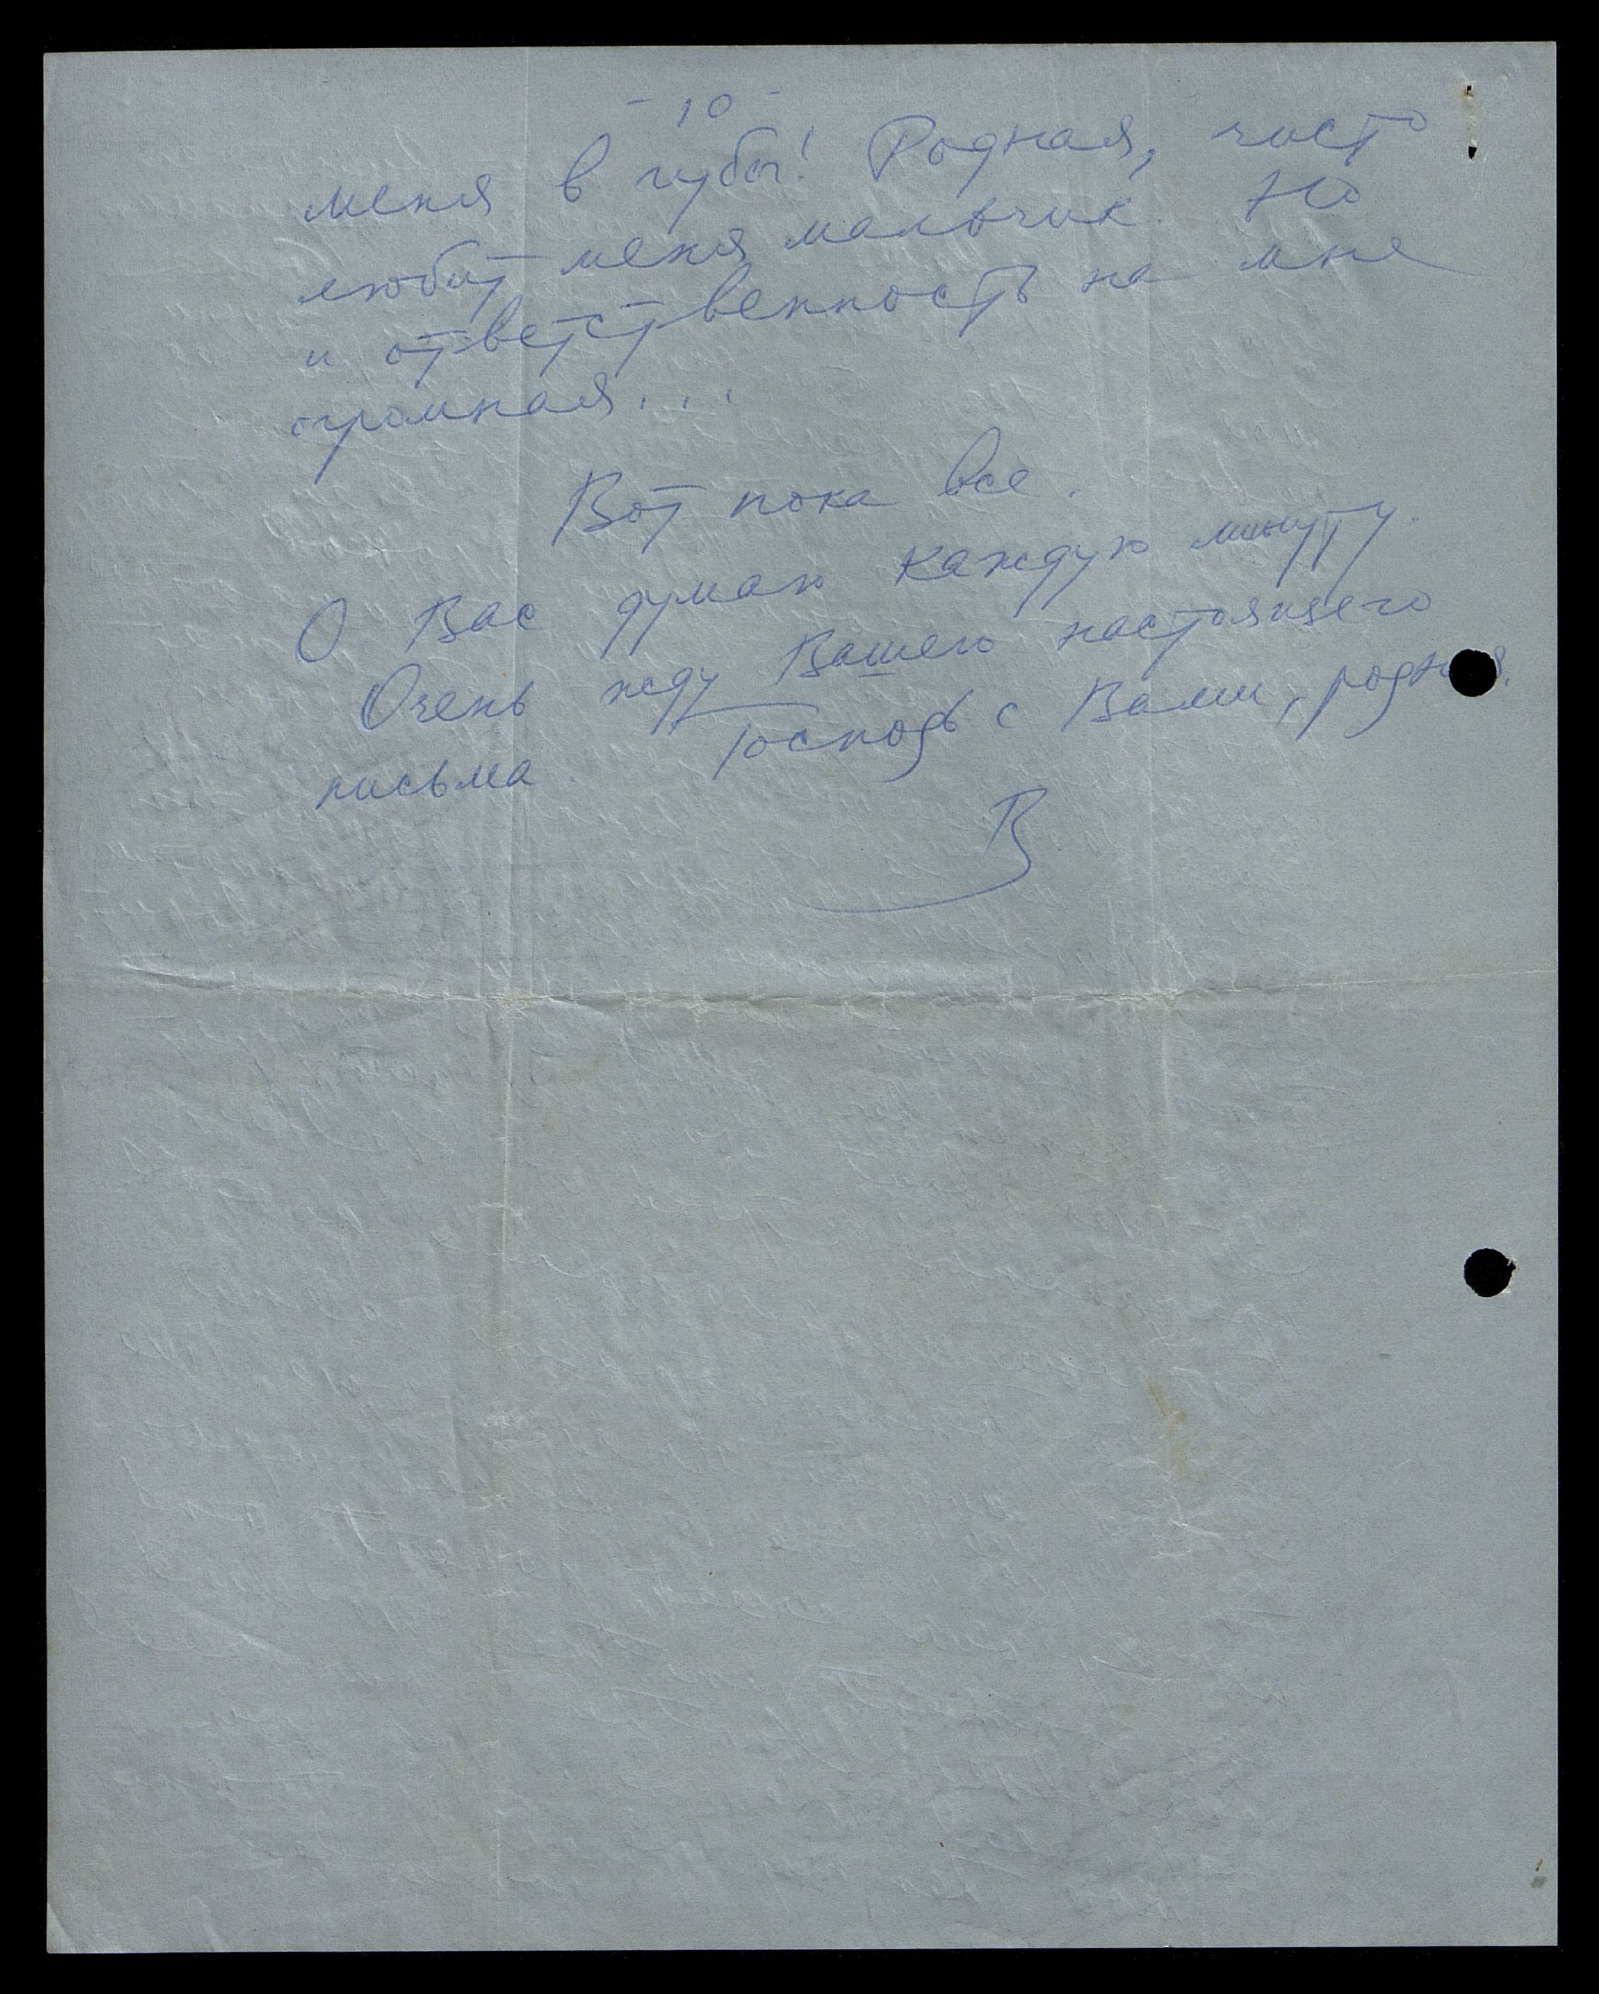 - 10 -
меня в губы! Родная, чисто
любит меня мальчик. Но
и ответственность на мне
огромная...
Вот пока все.
О Вас думаю каждую минуту.
Очень жду Вашего настоящего
письма. Господь с Вами, родная.
В